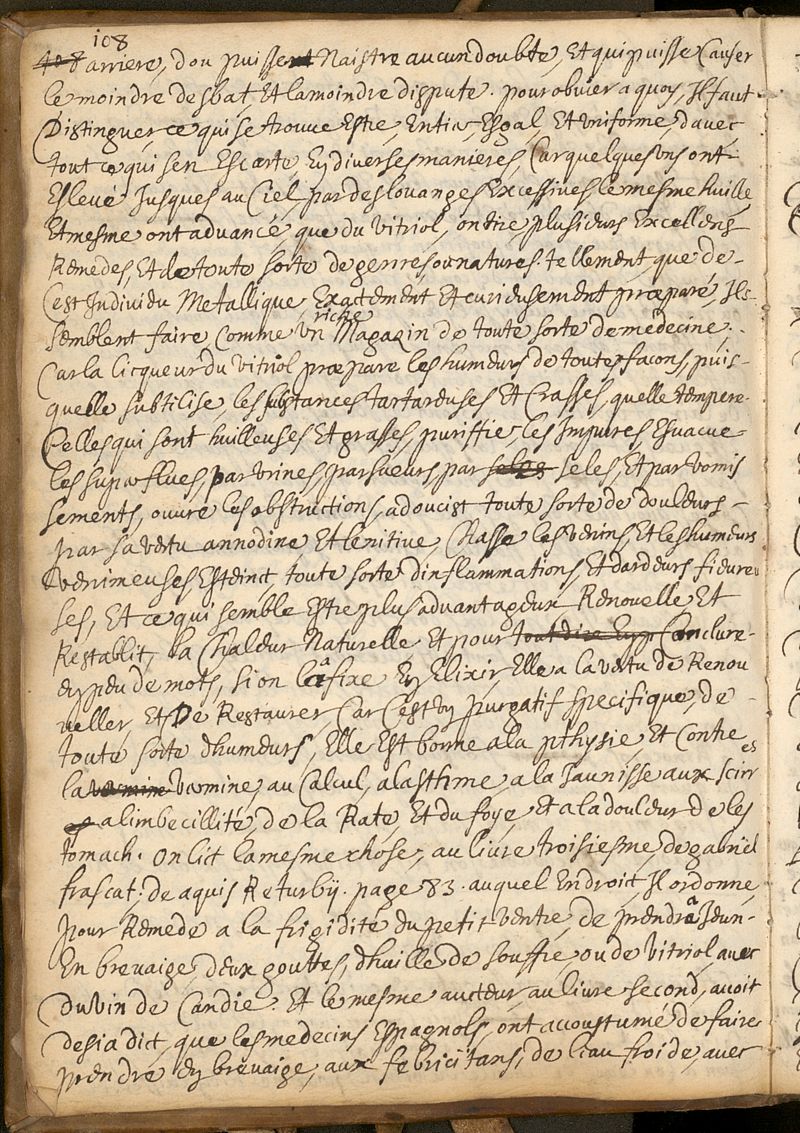 108
arriere, dou puissent Naistre aucun doubte, Et qui puisse Causer
le moindre desbat, Et la moindre dispute. pour obuier a quoy, Il faut
Distinguer ce qui se trouue Estre, Entier, Esgal, Et uniforme, dauec
tout ce qui sen Escarte, Ey diverses manieres, Car quelques uns ont
Esleué Jusques au Ciel, par des louanges Excessives le mesme huille
Et mesme ont aduancé, que du vitriol, on tire, plusieurs Excellens
Remedes, Et de toute sorte de genres ou natures. tellement que de
Cest Individu Metallique, Exactement Et curieusement præparé, Ils
semblent faire Comme un riche Magazin de toute sorte de medecine.
Car la licqueur du vitriol præpare les humeurs de toutes facons, puis-
quelle subtilise, les substances tartareuses Et Crasses, quelle tempere
Celles qui sont huilleuses Et grasses, puriffie, les Impures Esuacue
les superflues, par urines, par sueurs, par seles, Et par vomis
sements, ouure les obstructions, adoucist toute sorte de douleurs
par sa vertu annodine, Et lenitiue, Chasse les venins, Et les humeurs
venimeuses Esteinct toute sorte dinflammations, Et dardeurs fieureu
ses, Et ce qui semble Estre plus aduantageux Renouelle Et
Restablit, la Chaleur Naturelle Et pour Conclure
Ey peu de mots, si on la fixe Ey Elixir, Elle a la vertu de Renou
ueller, Et De Restaurer, Car Cest uy purgatif specifique, de
toute sorte dhumeurs, Elle Est bonne a la pthysie, Et Contre
la vermine, au Calcul, a lasthme, a la Jaunisse aux scirres
a limbecillité, de la Rate, Et du foye, Et a la douleur de les
tomach. on lict la mesme chose, au liure troisiesme, de gabriel
frascat, de aquis Returbÿ. page 83. auquel Endroit, Il ordonne
pour Remede a la frigidité du petit ventre, de prendre a Jeun
En breuaige, deux gouttes, dhuille de souffre, ou de vitriol, auec
du vin de Candie. Et le mesme aucteur, au liure second, auoit
desia dict, que les medecins Espagnols, ont accoustumé de faire
prendre Ey breuaige, aux febricitans, de leau froide, auec